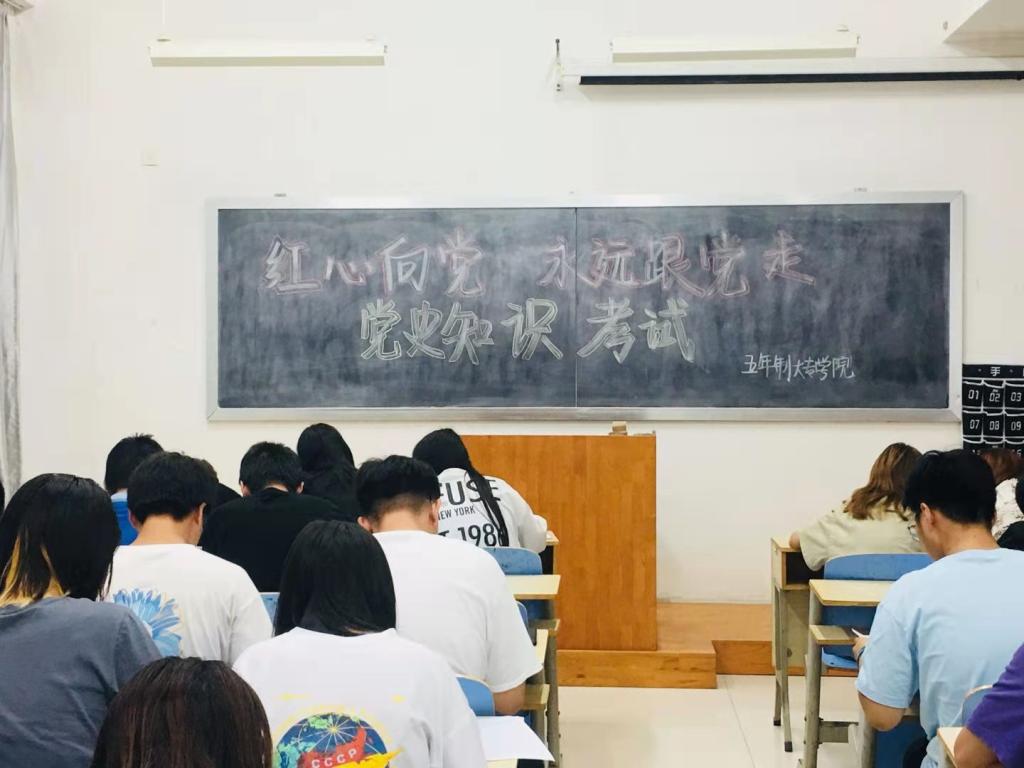 红心向党 永远跟党走
党史知识考试
五年制大专学院
FUSE
NEW YORK
T.198
CCCP
手
01 02 03
07 08 09